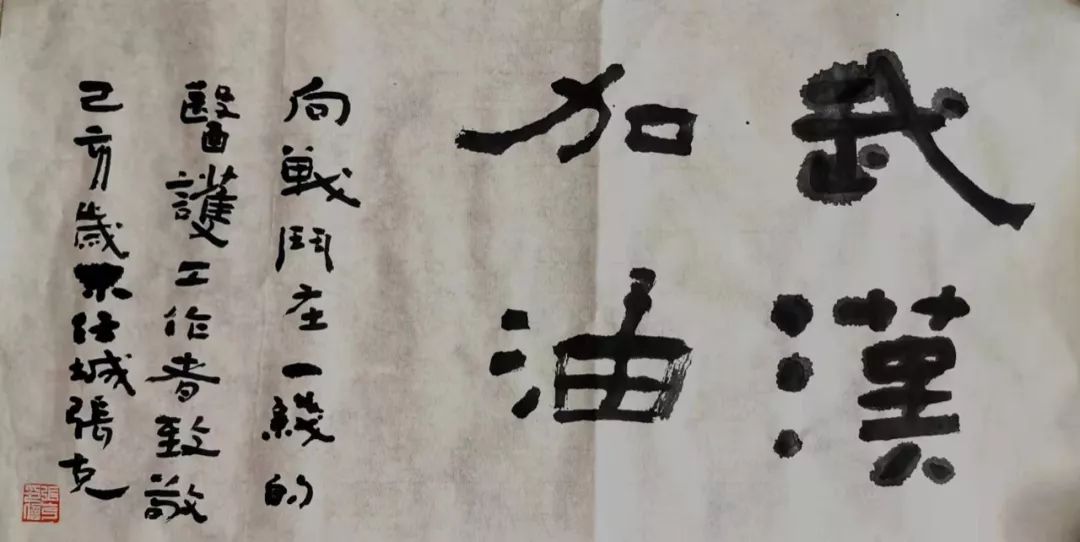 武漢
加油
向戰鬥在一綫的
醫護工作者致敬
己亥歲末任城張克